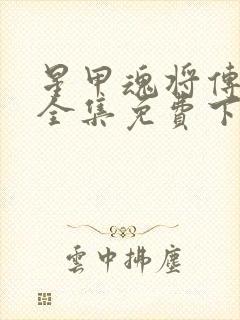 星甲魂将傳
全集免費下
雲中拂塵